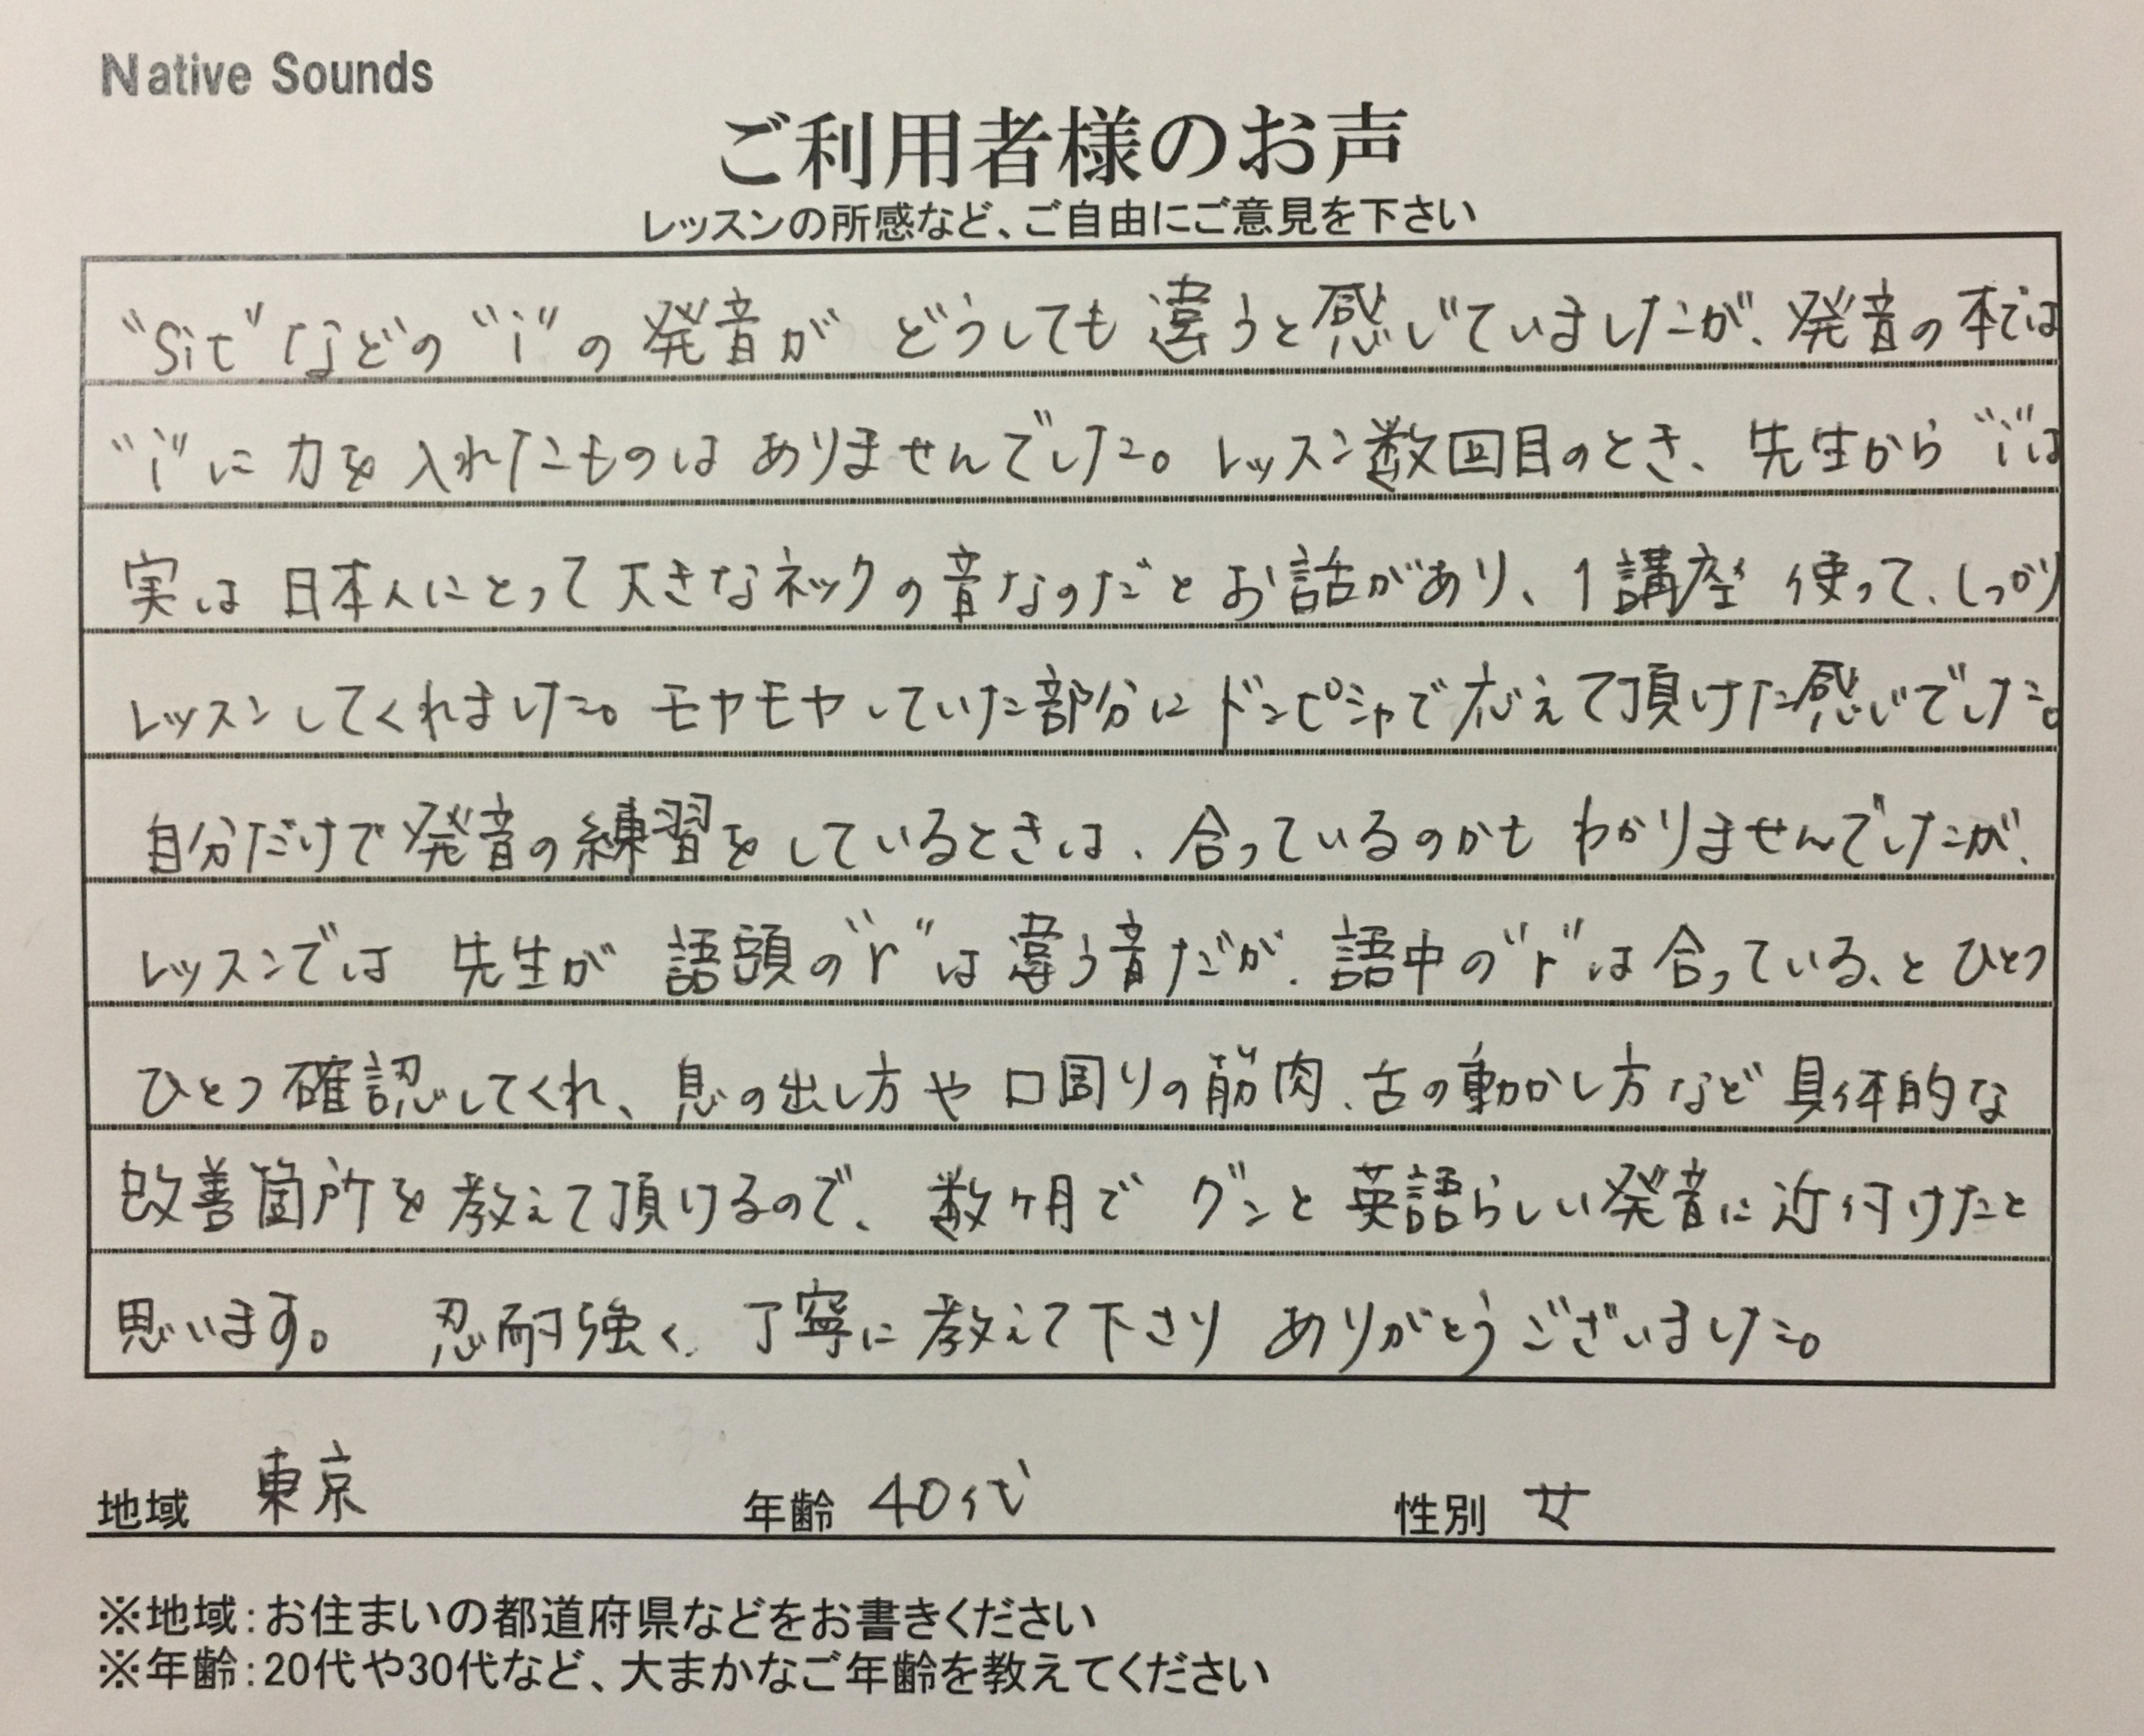 Native Sounds
ご利用者様のお声
レッスンの所感など、ご自由にご意見を下さい
"Sit"などの"i"の発音がどうしても違うと感じていましたが、発音の本では
"i"に力を入れたものはありませんでした。レッスン数回目のとき、先生から"i"は
実は日本人にとって大きなネックの音なのだとお話があり、1講座使って、しっかり
レッスンしてくれました。モヤモヤしていた部分にドンピシャで応えて頂けた感じでした。
自分だけで発音の練習をしているときは、合っているのかもわかりませんでしたが、
レッスンでは先生が語頭の"r"は違う音だが、語中の"r"は合っている、とひとつ
ひとつ確認してくれ、息の出し方や口周りの筋肉、舌の動かし方など具体的な
改善箇所を教えて頂けるので、数ヶ月でグンと英語らしい発音に近付けたと
思います。 忍耐強く、丁寧に教えて下さりありがとうございました。
地域 東京 年齢 40代 性別 女
※地域：お住まいの都道府県などをお書きください
※年齢：20代や30代など、大まかなご年齢を教えてください